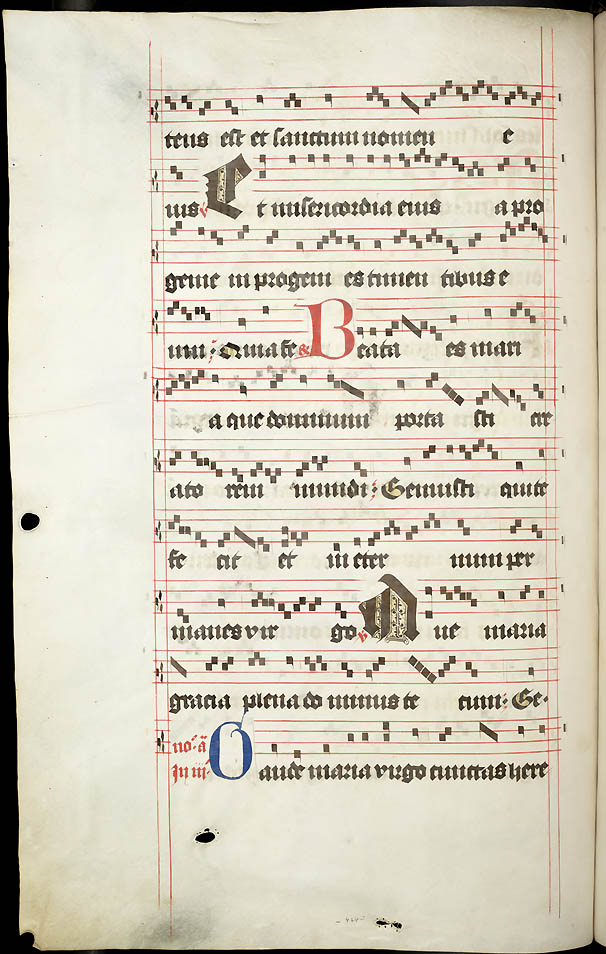 tens est et sanctum nomen e
ius v Et misericordia eius · a pro
genie in progeni es timen tibus e
um : Quia fe R Beata es mari
a que dominum porta sti cre
ato rem mundi : Genuisti qui te
fe cit et in eter num per
manes vir go v Aue maria
gracia plena do minus te cum : Ge·
no· ā Gaude maria virgo cunctas here
In iii·